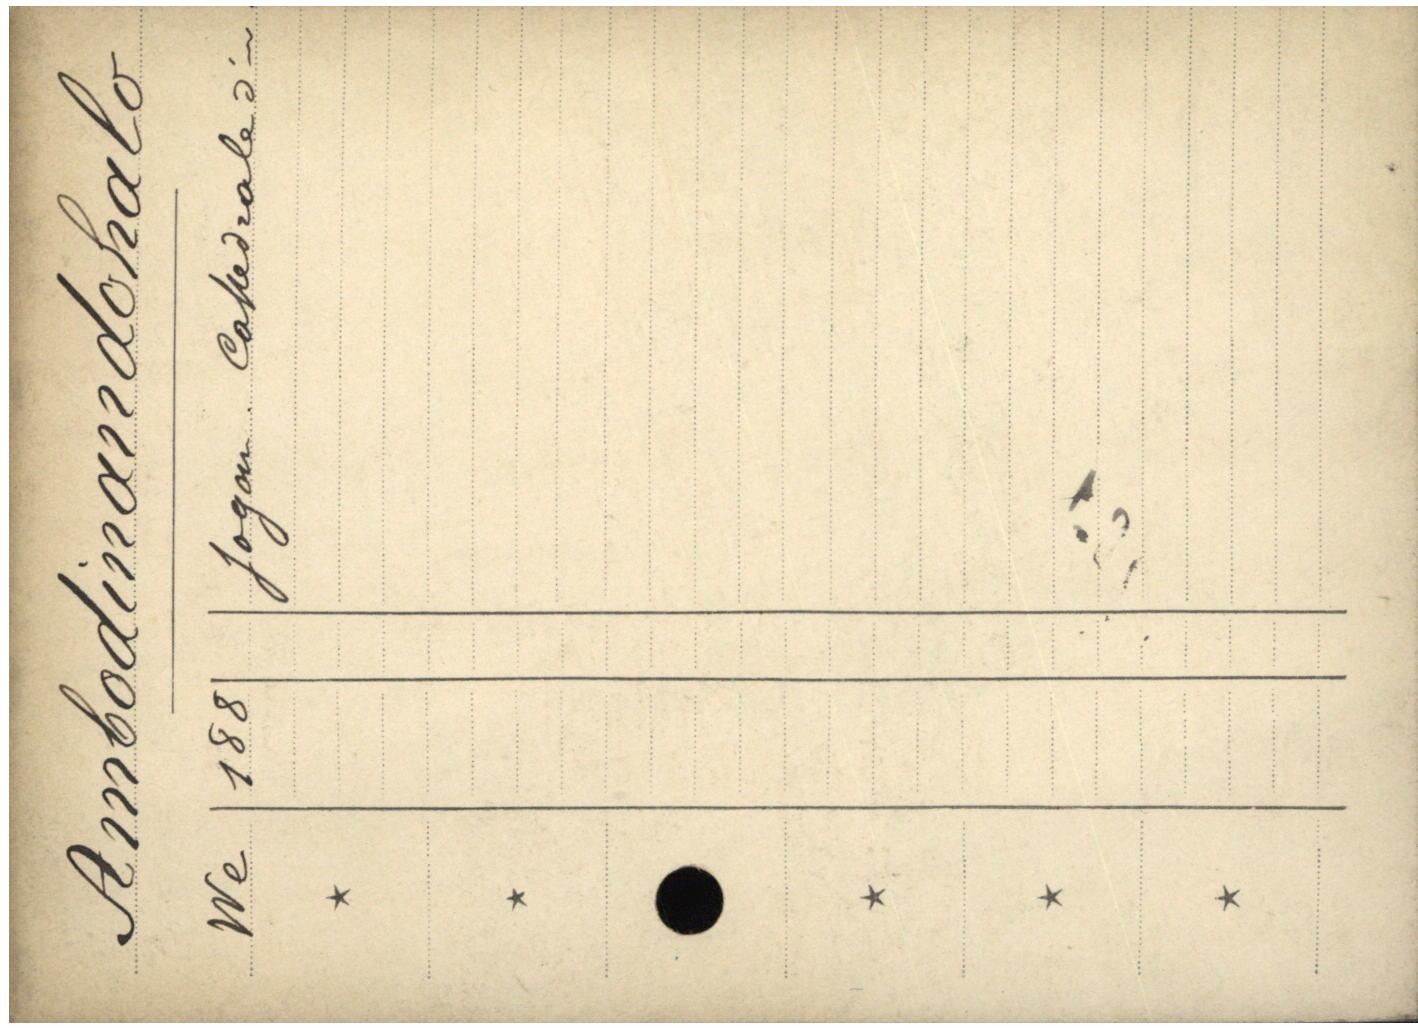 Ambodinandohalo
We 188 Cathedrale d'~